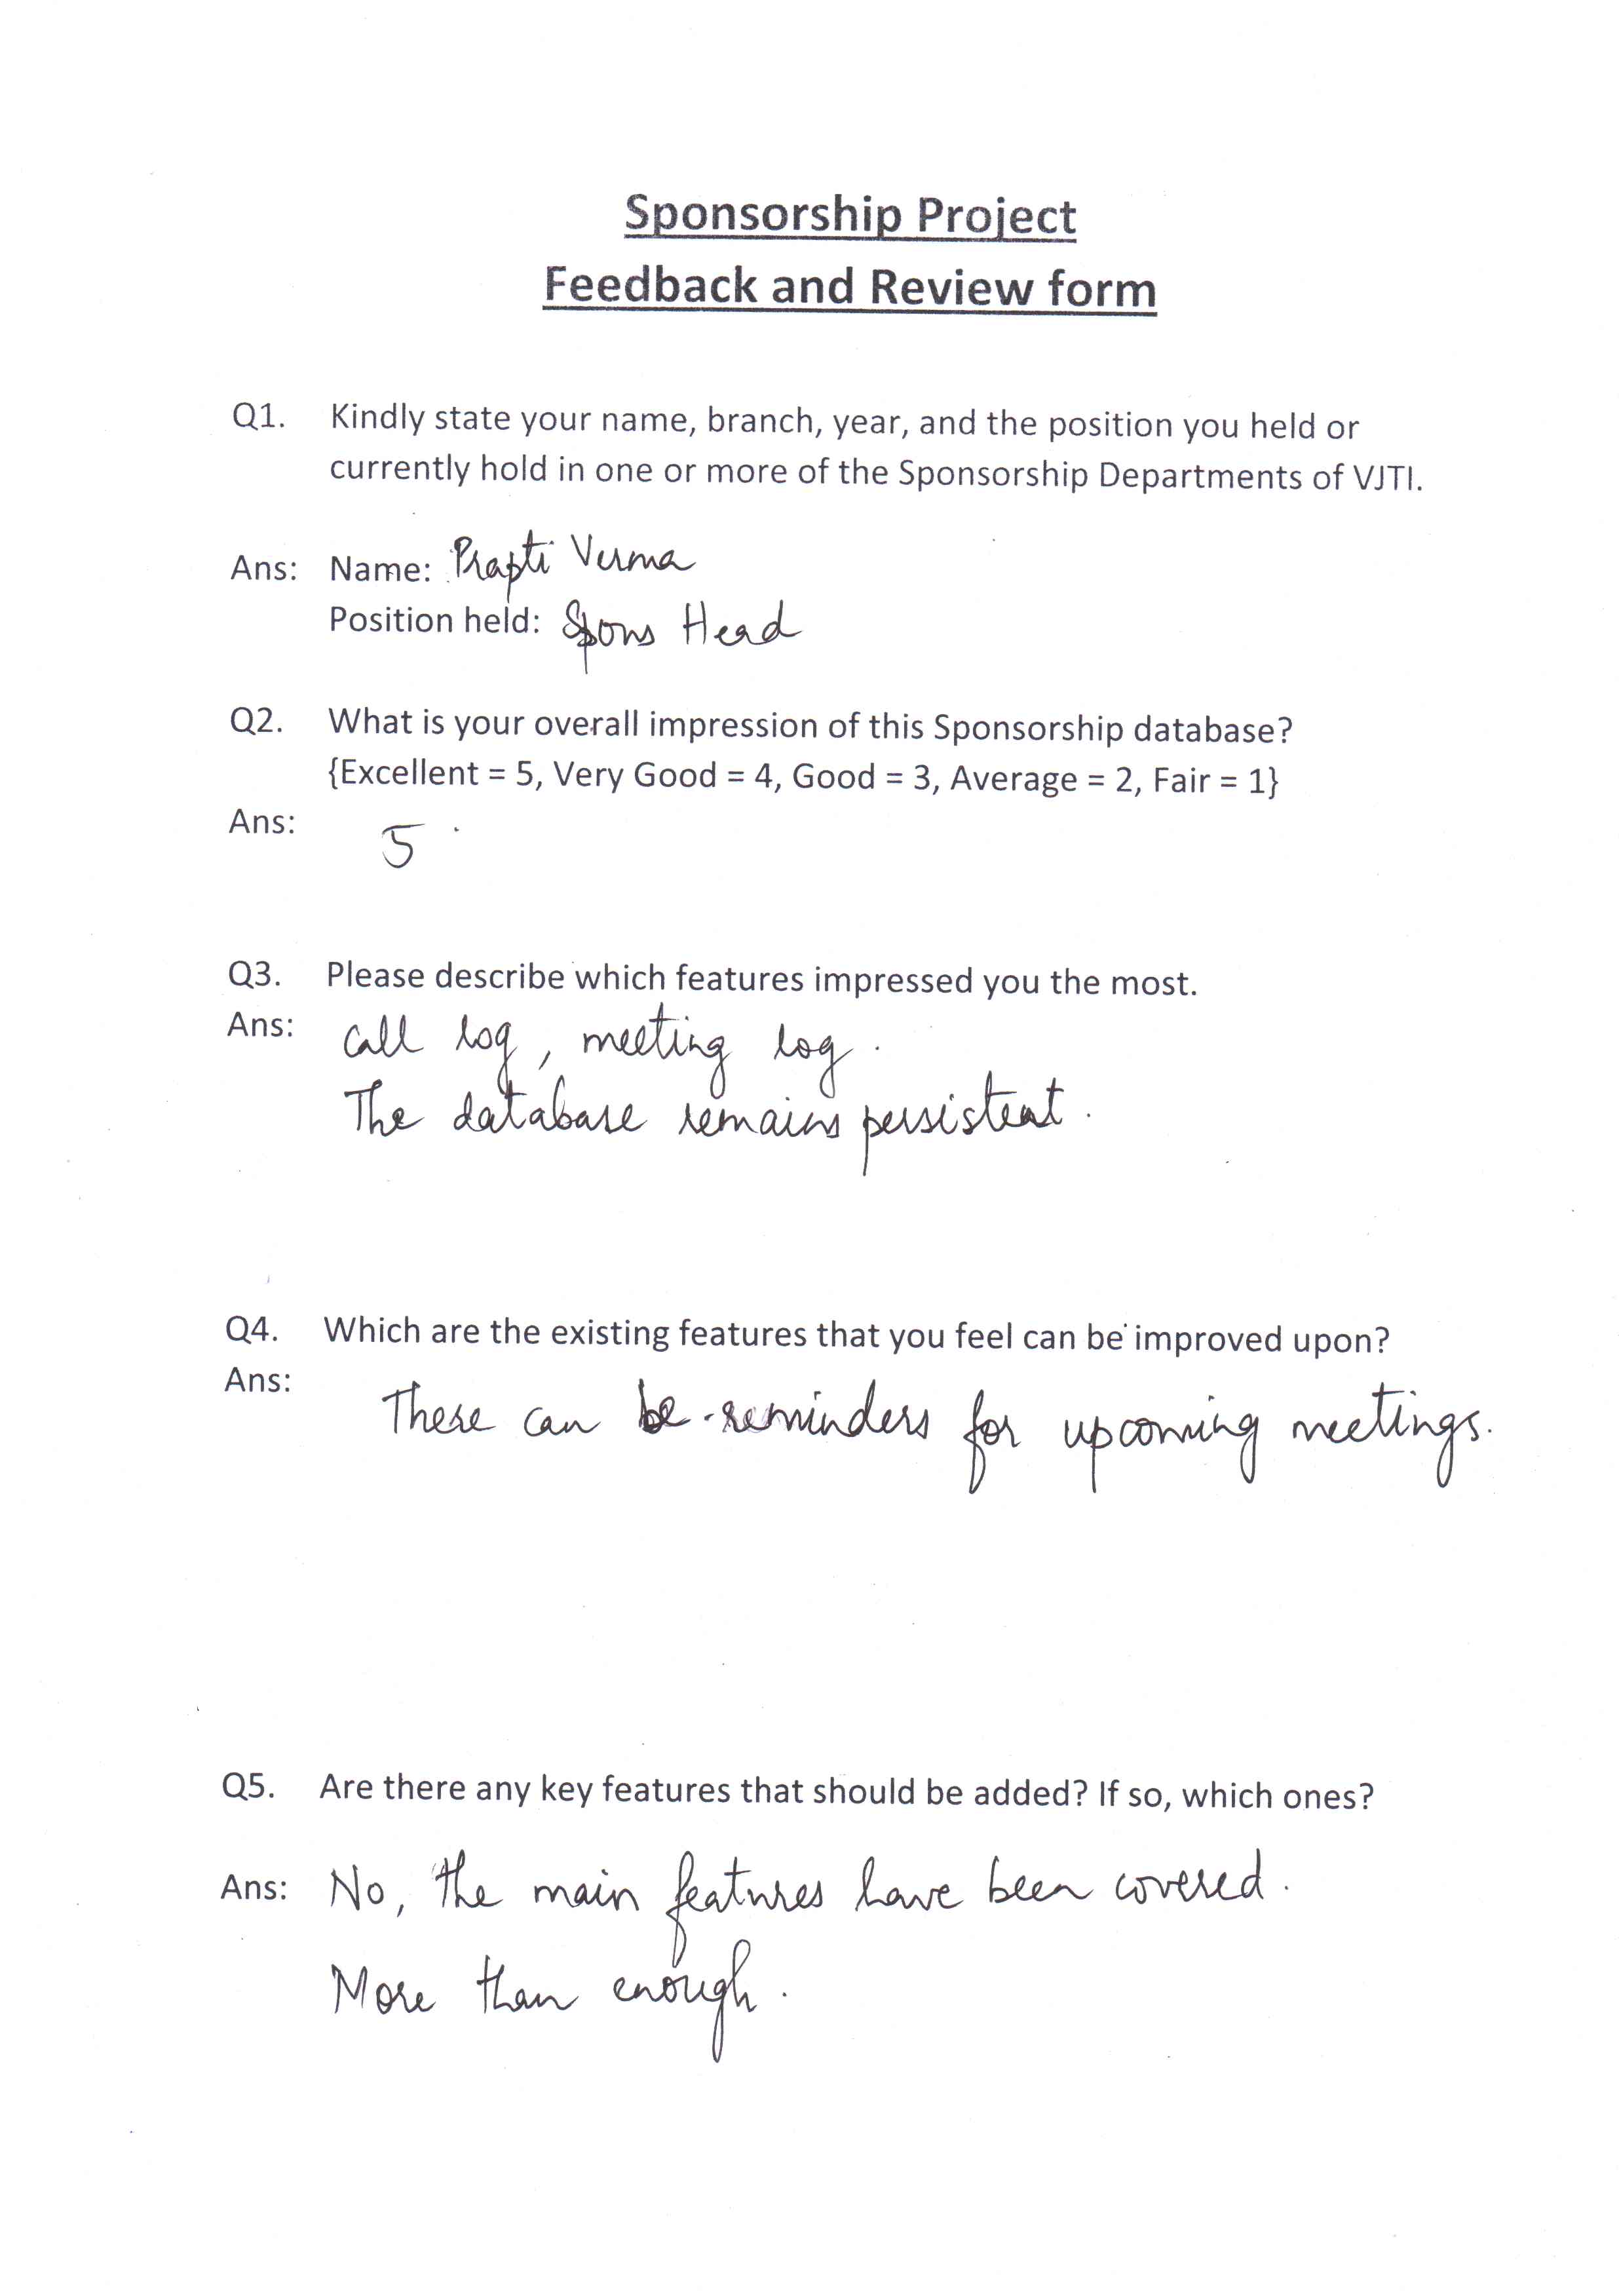 Sponsorship Project
Feedback and Review form
Q1. Kindly state your name, branch, year, and the position you held or
currently hold in one or more of the Sponsorship Departments of VJTI.
Ans: Name: Prapti Verma
Position held: Spons Head
Q2. What is your overall impression of this Sponsorship database?
{Excellent = 5, Very Good = 4, Good = 3, Average = 2, Fair = 1}
Ans:
5
Q3. Please describe which features impressed you the most.
Ans: Call log, meeting log.
The database remains persistent.
Q4. Which are the existing features that you feel can be improved upon?
Ans:
There can be reminders for upcoming meetings.
Q5. Are there any key features that should be added? If so, which ones?
Ans: No, the main features have been covered.
More than enough.